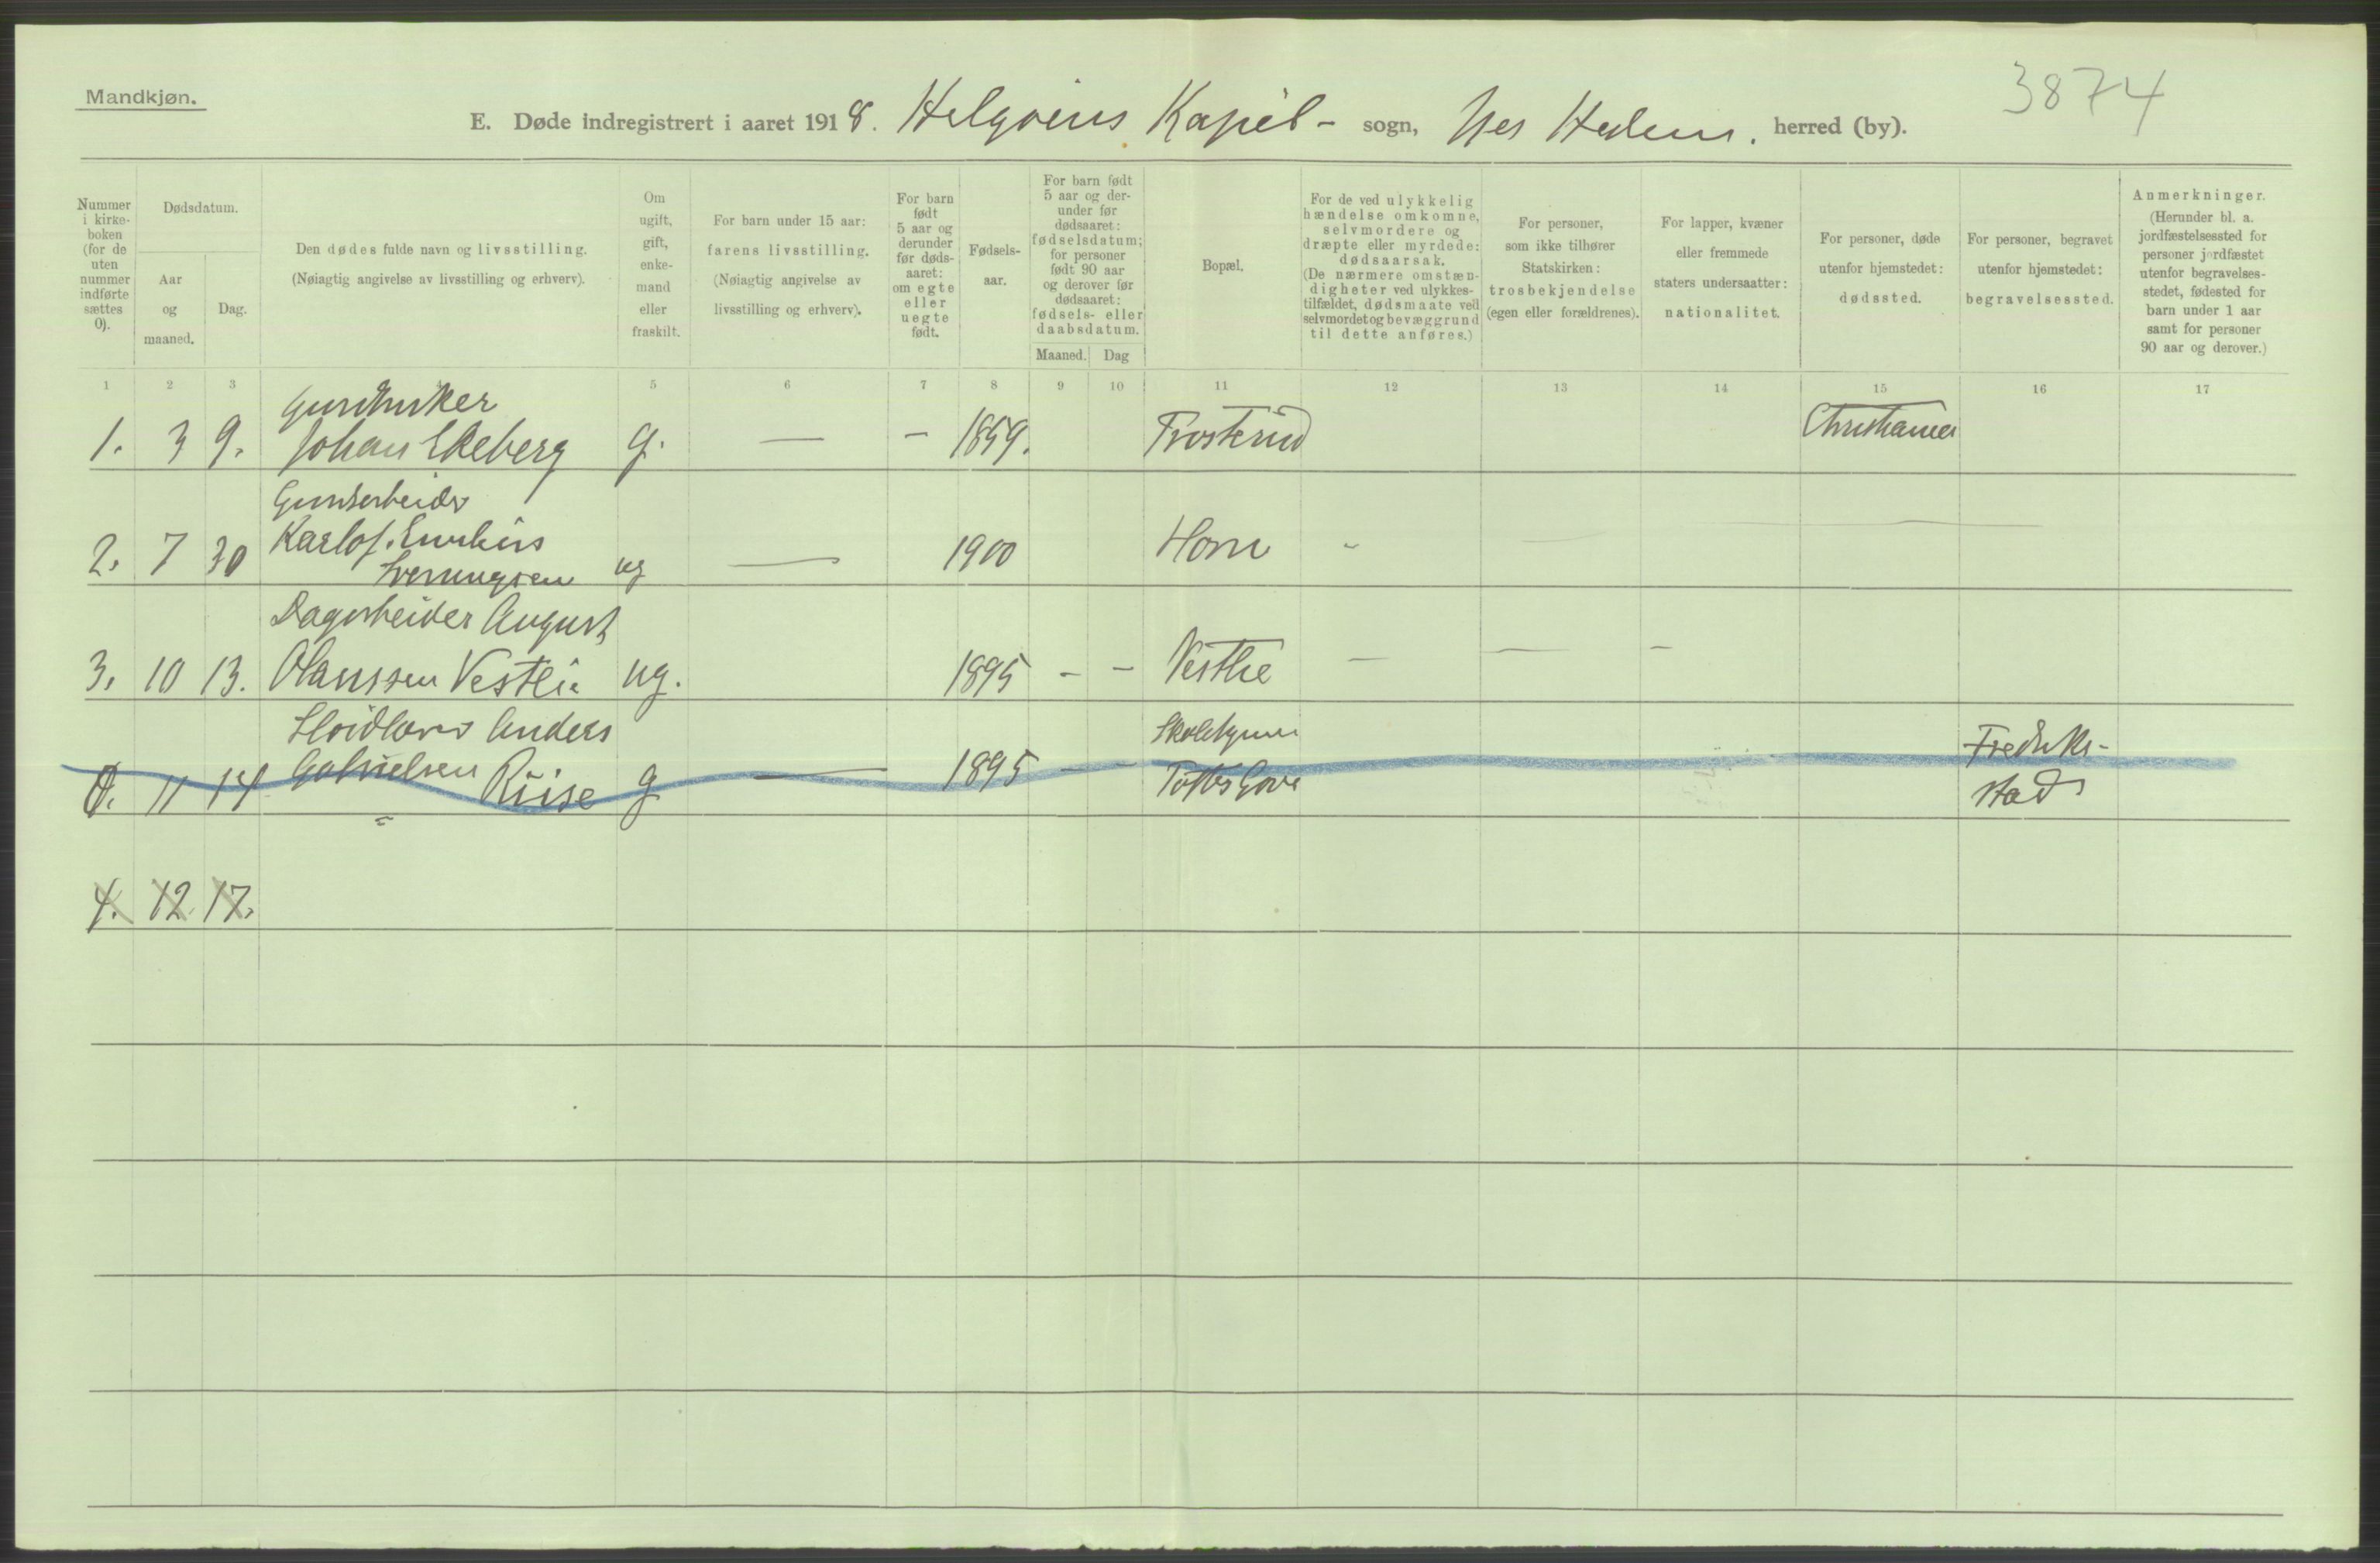 Mandkjøn.
3874
E. Døde indregistrert i aaret 1918. Helgøens Kapel- sogn, Nes Hedem. herred (by).
Nummer
i kirke-
boken
(for de
uten
nummer
indførte
sættes
0).
Dødsdatum.
Aar
og
maaned.
Dag.
Den dødes fulde navn og livsstilling.
(Nøiagtig angivelse av livsstilling og erhverv).
Om
ugift,
gift,
enke-
mand
eller
fraskilt.
For barn under 15 aar:
farens livsstilling.
(Nøiagtig angivelse av
livsstilling og erhverv).
For barn
født
5 aar og
derunder
før døds-
aaret:
om egte
eller
uegte
født.
Fødsels-
aar.
For barn født
5 aar og der-
under før
dødsaaret:
fødselsdatum;
for personer
født 90 aar
og derover før
dødsaaret:
fødsels- eller
daabsdatum.
Maaned. Dag
Bopæl.
For de ved ulykkelig
hændelse omkomne,
selvmordere og
dræpte eller myrdede:
dødsaarsak.
(De nærmere omstæn-
digheter ved ulykkes-
tilfældet, dødsmaate ved
selvmordet og bevæggrund
til dette anføres.)
For personer,
som ikke tilhører
Statskirken:
trosbekjendelse
(egen eller forældrenes).
For lapper, kvæner
eller fremmede
staters undersaatter:
nationalitet.
For personer, døde
utenfor hjemstedet:
dødssted.
For personer, begravet
utenfor hjemstedet:
begravelsessted.
Anmerkninger.
(Herunder bl. a.
jordfæstelsessted for
personer jordfæstet
utenfor begravelses-
stedet, fødested for
barn under 1 aar
samt for personer
90 aar og derover.)
1 2 3 5 6 7 8 9 10 11 12 13 14 15 16 17
Gurdbruker
1. 3 9. Johan Ekeberg g. — - 1859. Frosterud Christiania
Gurdsarbeider
Karlof.
2. 7 30 ug — 1900 Horn -
Dagarbeider August
3. 10 13. Olaussen Vestlie ug. 1895 - - Vestlie — — -
Anders
Fredrik-
0. 11 14 Gabrielsen Riise g — 1895 - -
stad
4. 12. 17.